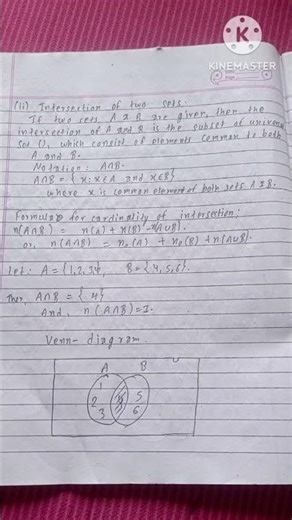 KINEMASTER
(ii). Intersection of two sets.
If two sets A & B are given, then the
intersection of A and B is the subset of universal
set U, which consist of elements common to both
A and B.
Notation: A∩B.
A∩B = { x: x∈A and x∈B}
where x is common element of both sets A & B.
Formula for cardinality of intersection:
n(A∩B) = n(A) + n(B) - n(A∪B).
or, n(A∩B) = n₀(A) + n₀(B) + n(A∪B)
Let: A = {1,2,3,4}, B = {4,5,6}.
Then, A∩B = { 4}
And, n(A∩B) = 1.
Venn-diagram.
A B U
1
2 4 5
3 6